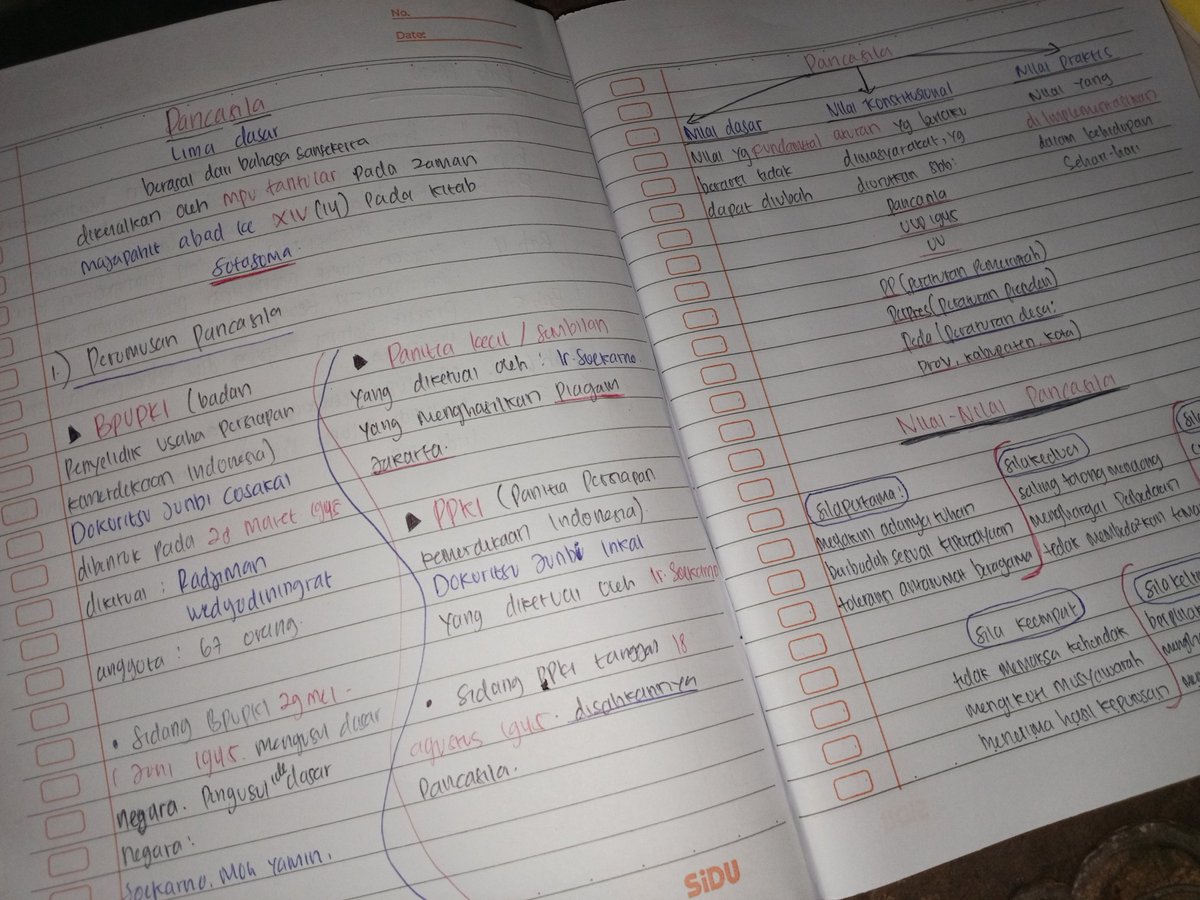 No.
Date:
Pancasila
Lima dasar
berasal dari bahasa sansekerta
dikenalkan oleh mpu tantular pada zaman
majapahit abad ke XIV (14) pada kitab
Sotasoma.
1.) Perumusan Pancasila
BPUPKI (badan
Penyelidik usaha persiapan
kemerdekaan Indonesia)
Dokuritsu Junbi Cosakai
dibentuk pada
maret 1945
diketuai : Radjiman
wedyodiningrat
anggota : 67 orang.
• Sidang BPUPKI 29 mei -
1 Juni 1945. mengusul dasar
negara. Pengusul ide dasar
negara :
Soekarno, Moh Yamin,
Panitia kecil / sembilan
yang diketuai oleh : Ir. Soekarno.
yang menghasilkan Piagam
Jakarta.
PPKI (Panitia Persiapan
kemerdekaan Indonesia)
Dokuritsu Junbi Inkai
yang diketuai oleh Ir. Soekarno
• Sidang PPKI tanggal 18
agustus 1945. disahkannya
Pancasila.
SiDU
Pancasila
Nilai dasar
Nilai yg fundamental
bersifat tidak
dapat diubah
Nilai Konstitusional
aturan yg berlaku
dimasyarakat, yg
diurutkan
Pancasila
UUD 1945
UU
PP (peraturan Pemerintah)
Perpres (Peraturan Presiden)
Perda (peraturan desa:
Prov, kabupaten, kota)
Nilai Praktis
Nilai yang
di implementasikan
dalam kehidupan
sehari-hari
Nilai-Nilai Pancasila
Sila pertama :
meyakini adanya tuhan
beribadah sesuai kepercayaan
toleransi antarumat beragama
Sila kedua
saling tolong menolong
menghargai Perbedaan
tidak membedakan
Sila keempat
tidak memaksa kehendak
mengikuti musyawarah
menerima hasil keputusan